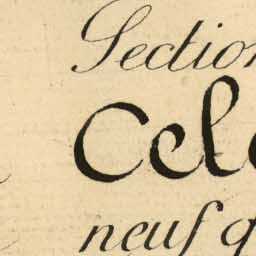 Section
Cel
neuf q